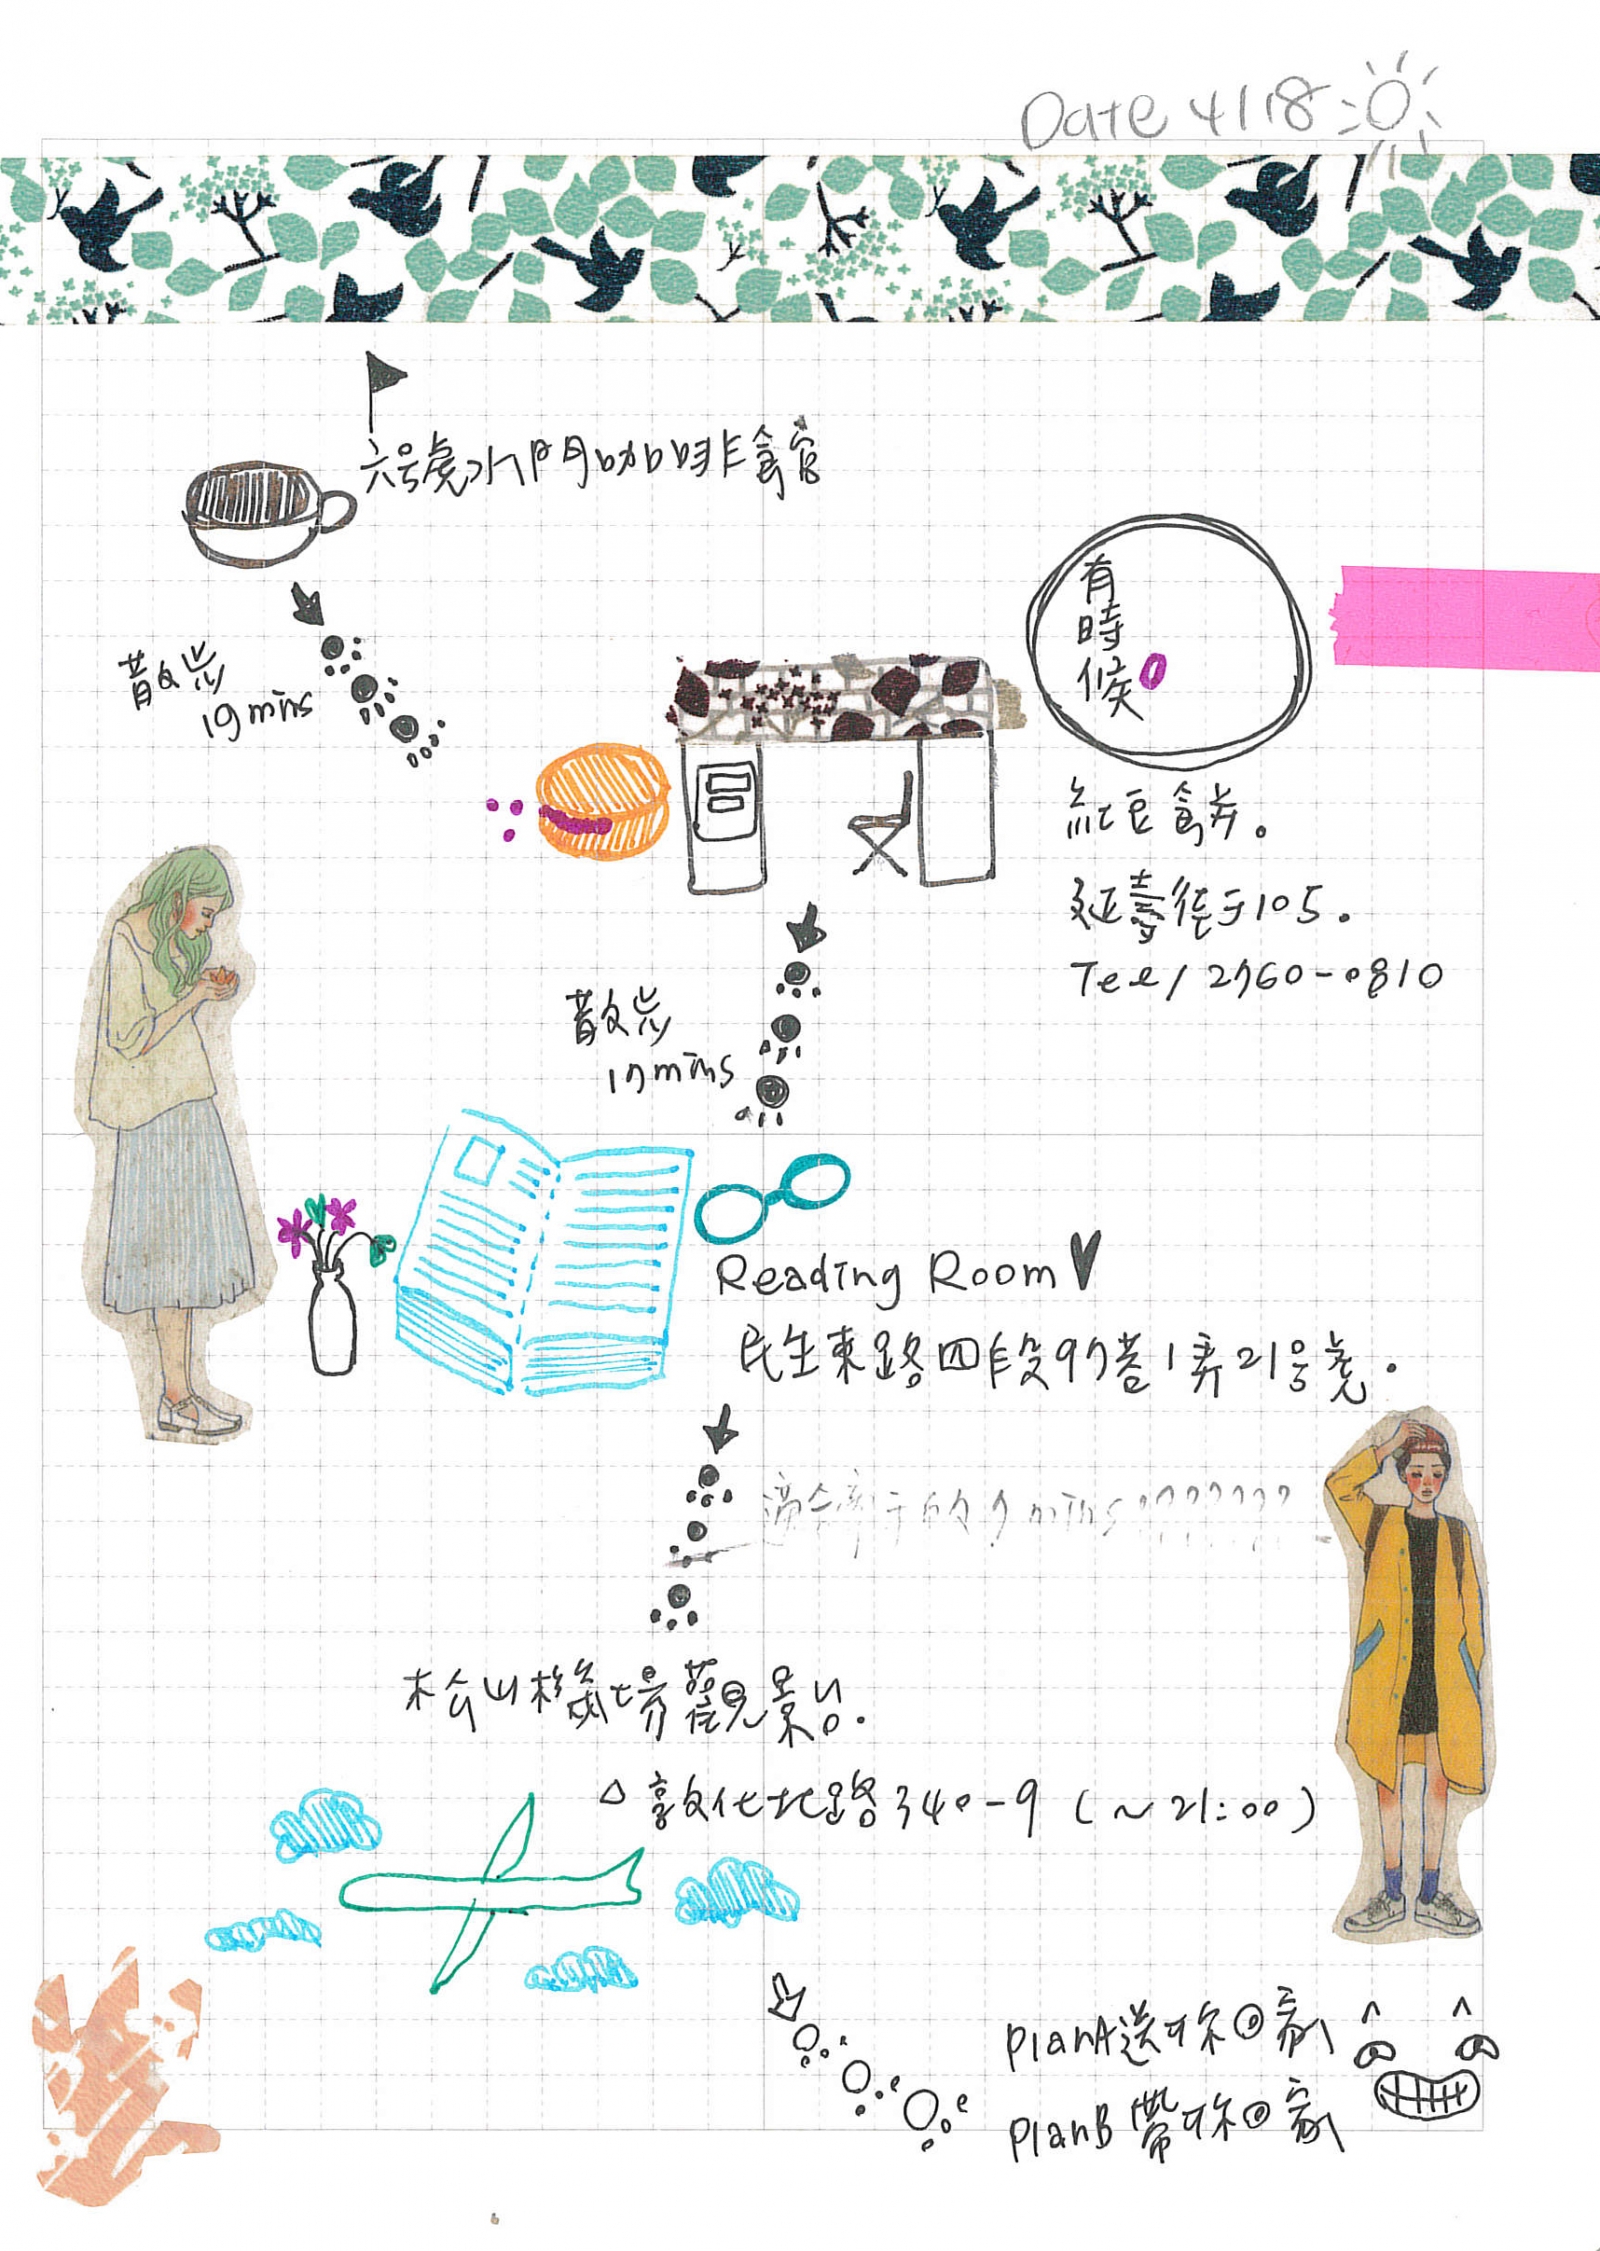 Date 4/18
六号虎水門咖啡食官
散步
19 mins
有時候
紅豆餅。
延壽街105.
Tel/2760-0810
散步
17 mins
Reading Room
民生東路四段97巷1弄21号虎.
適合牽手的9mins???????
松山機場觀景台.
△敦化北路340-9 (~21:00)
planA送你回家
planB帶你回家